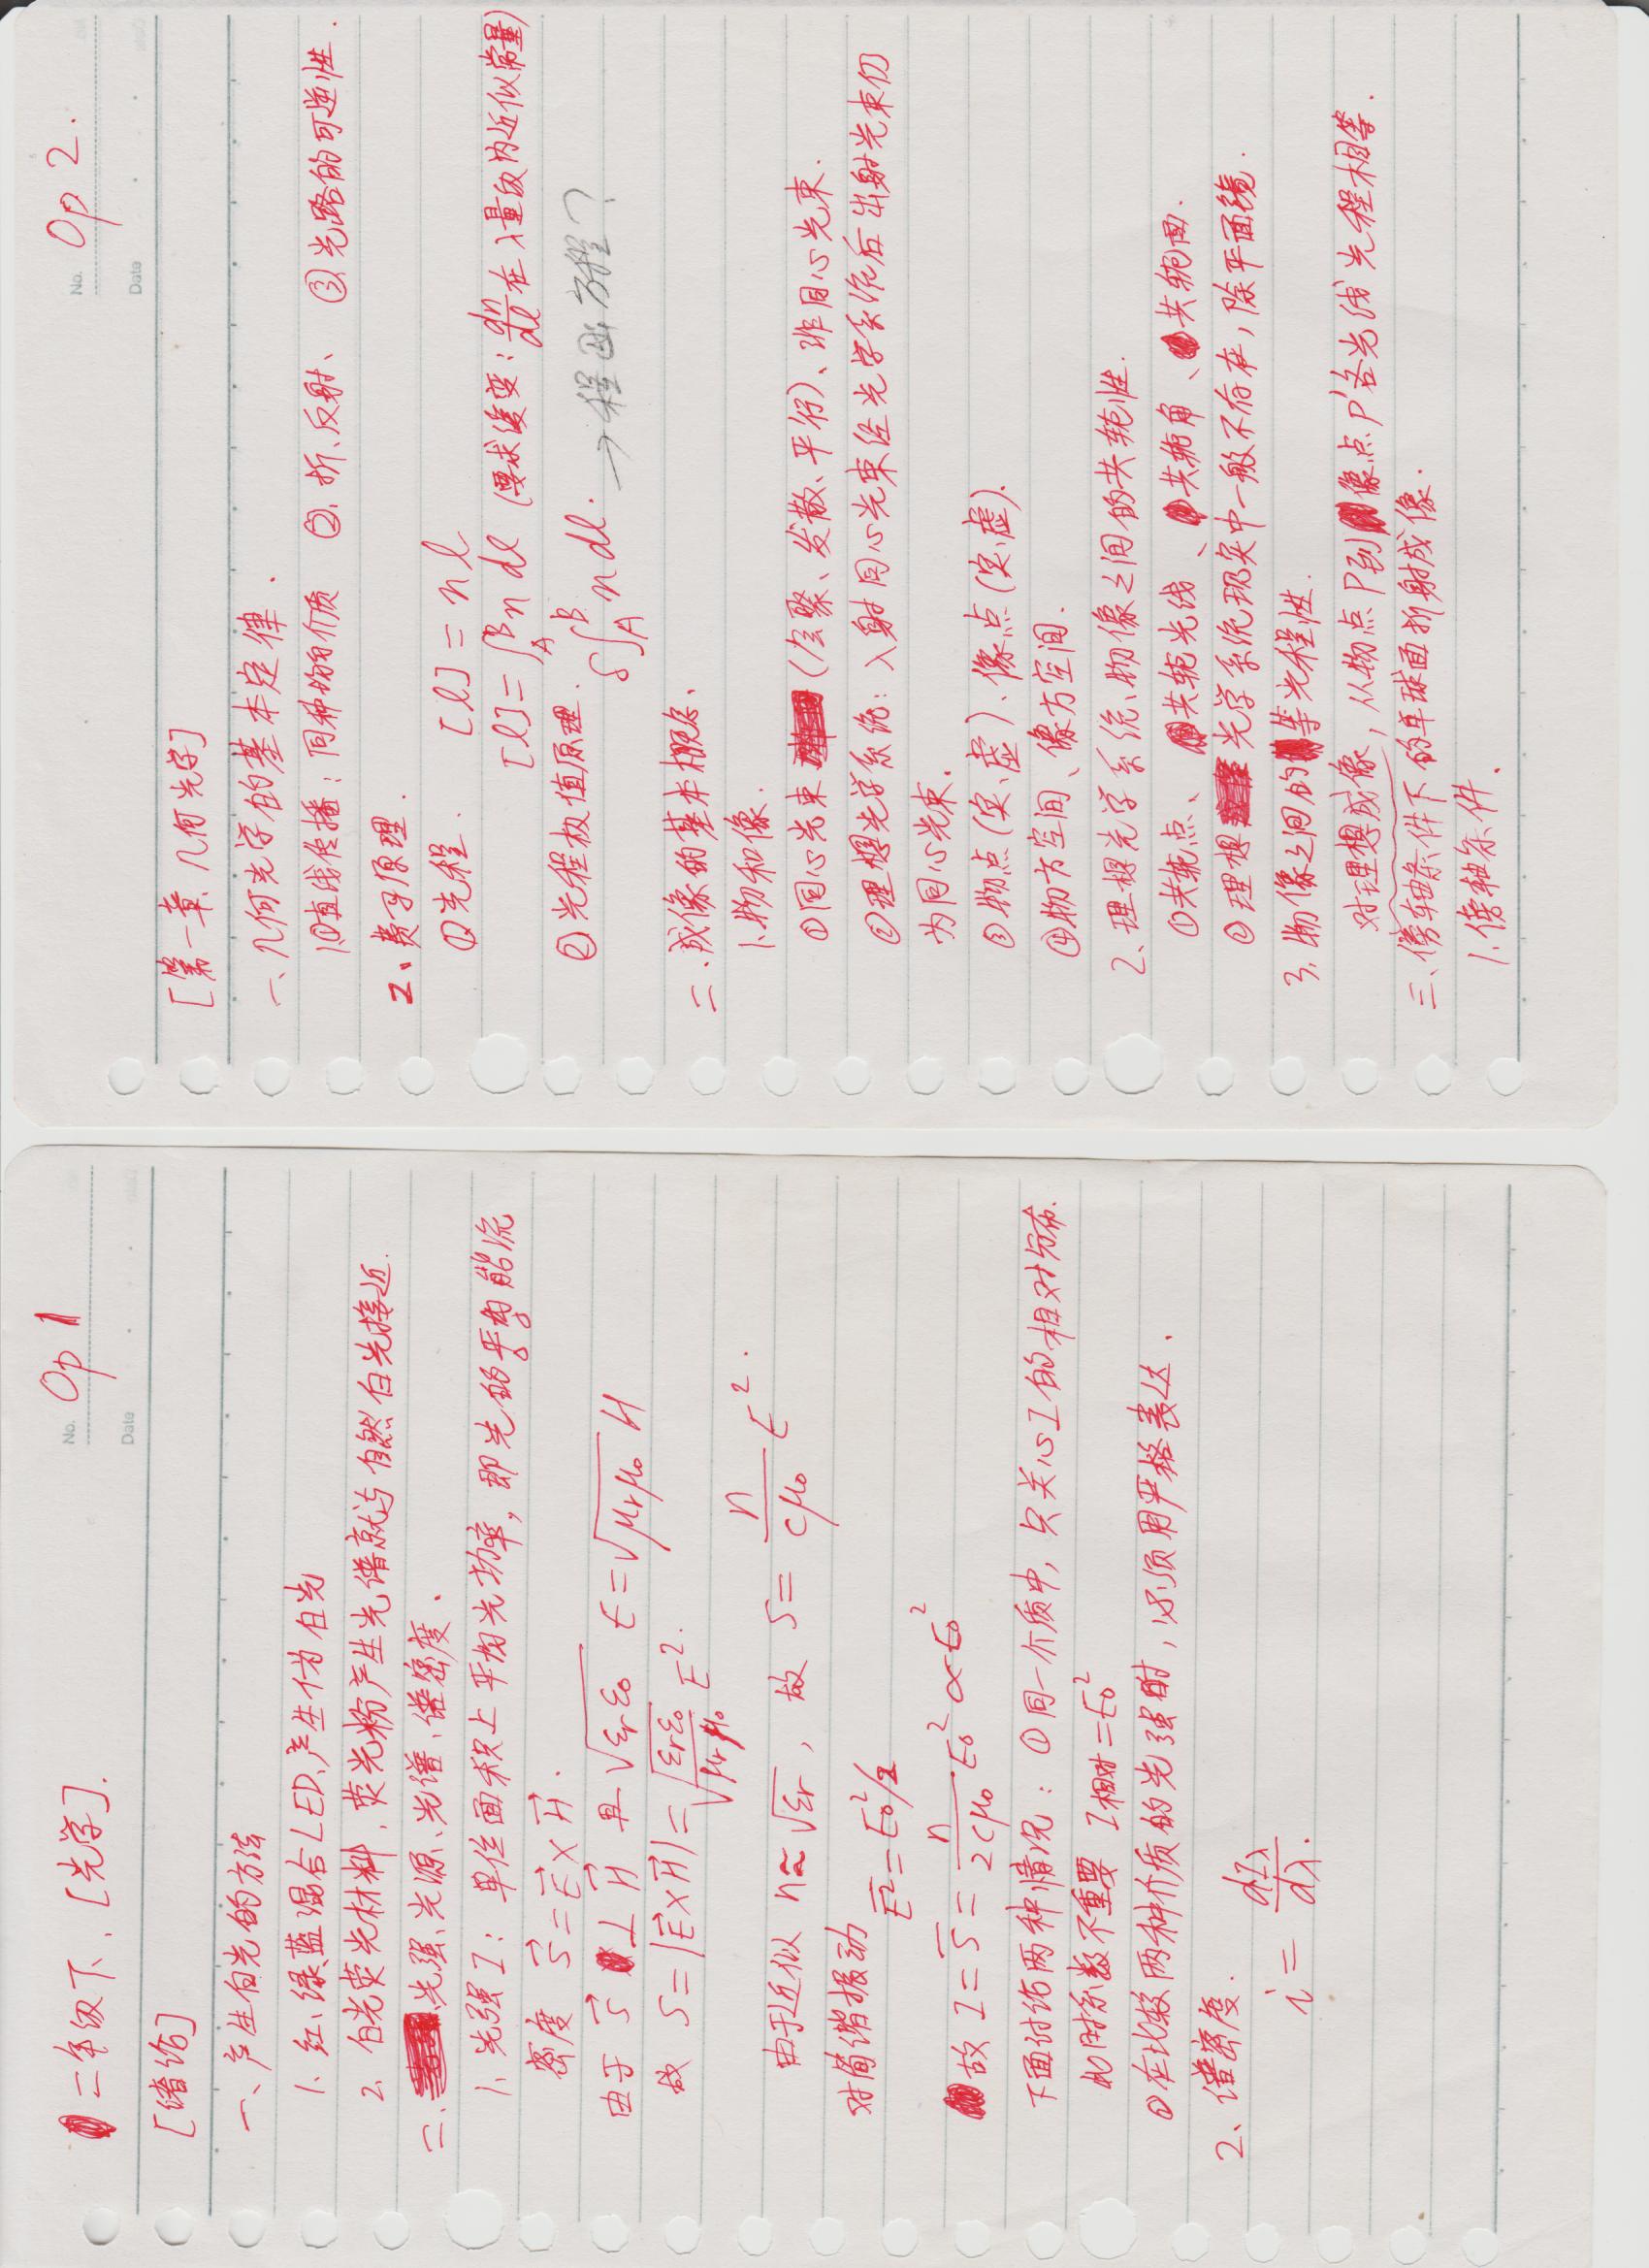 二年级下、[光学].
No. Op 1
Date
[绪论]
一、产生白光的方法
1. 红、绿、蓝混合LED、产生伪白光
2. 白光荧光材料，荧光粉产生光谱就与自然白光接近.
二、光强、光源、光谱、谱密度.
1. 光强I：单位面积上平均光功率，即光的平均能流
密度 $\vec{S}=\vec{E}\times\vec{H}$.
由于 $\vec{S}$ ⊥ $\vec{H}$ 且 $\sqrt{\varepsilon_r\varepsilon_0}$ E = $\sqrt{\mu_r\mu_0}$ H
故 $S=|\vec{E}\times\vec{H}|=\sqrt{\frac{\varepsilon_r\varepsilon_0}{\mu_r\mu_0}}E^2$.
由于近似 $n≈\sqrt{\varepsilon_r}$，故 $S=\frac{n}{c\mu_0}E^2$.
对简谐振动
$\overline{E^2}=E_0^2/2$
故 $I=\overline{S}=\frac{n}{2c\mu_0}E_0^2∝E_0^2$
下面讨论两种情况：①同一介质中，只关心I的相对分布.
此时系数不重要 $I_{相对}=E_0^2$
②在比较两种介质的光强时，必须用严格表达.
2、谱密度.
$i=\frac{dI_\lambda}{d\lambda}$.
No. Op 2.
Date
[第一章、几何光学]
一、几何光学的基本定律.
1.①直线传播：同种均匀介质 ②、折、反射、 ③光路的可逆性.
2、费马原理.
①光程. [l]=nl
$[l]=\int_A^B n\,dl$ (要求缓变：$\frac{dn}{dl}$在λ量级内近似常量)
②光程极值原理. $\delta\int_A^B n\,dl$. → 程函方程？
二.成像的基本概念、
1.物和像.
①同心光束(会聚、发散、平行)、非同心光束.
②理想光学系统：入射同心光束经光学系统后出射光束仍
为同心光束.
③物点(实、虚)、像点(实、虚).
④物方空间、像方空间.
2、理想光学系统、物像之间的共轭性.
①共轭点、共轭光线、共轭角、共轭面.
②理想光学系统现实中一般不存在，除平面镜.
3.物像之间的等光程性.
对理想成像，从物点P到像点P'各光线光程相等.
三、傍轴条件下的单球面折射成像.
1.傍轴条件.